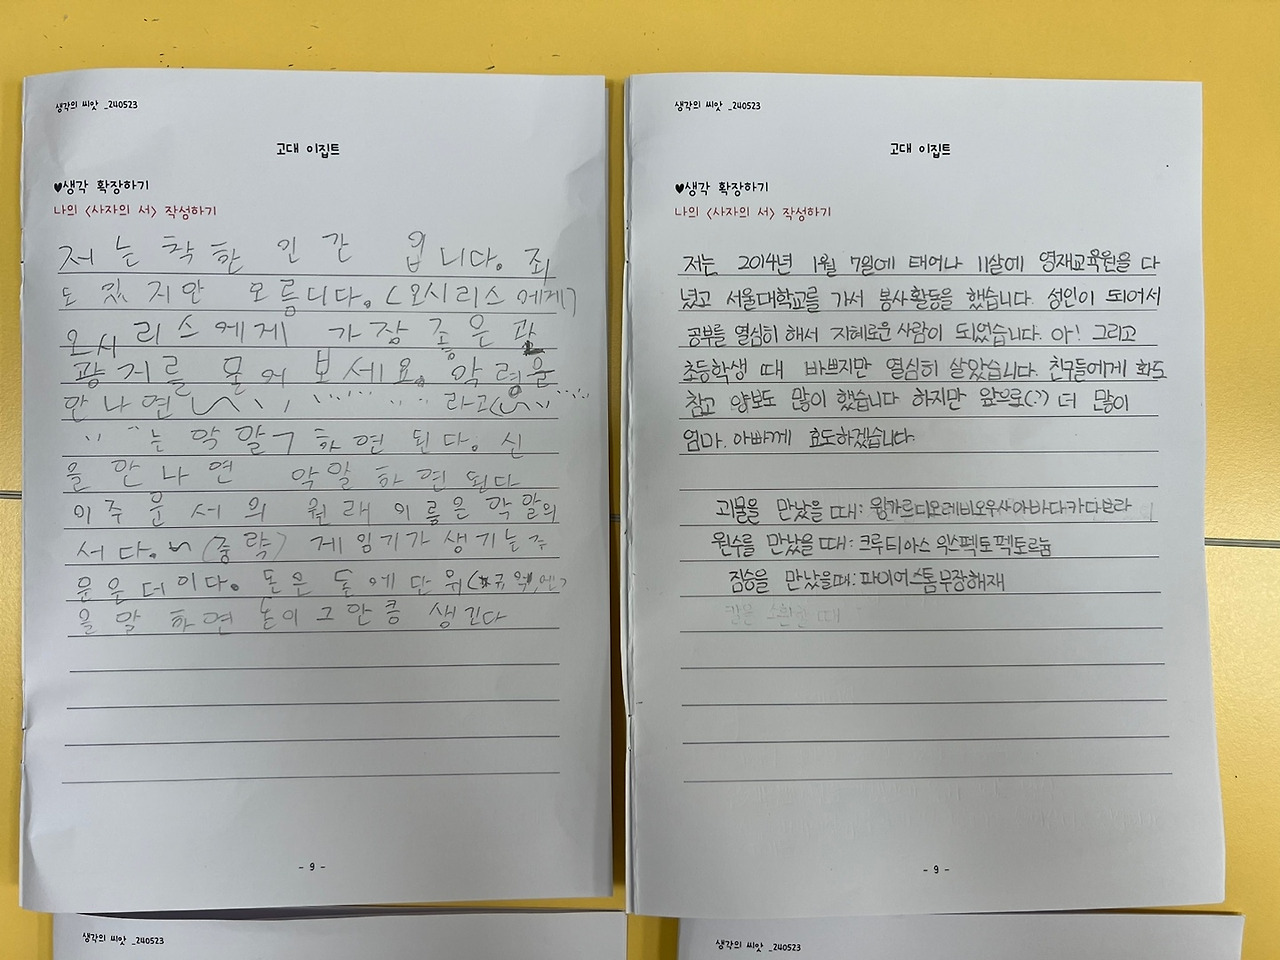 생각의 씨앗 _240523
고대 이집트
♥생각 확장하기
나의 <사자의 서> 작성하기
저는 착한 인간 입니다. 죄
도 있지만 모릅니다. <오시리스에게>
오시리스에게 가장 좋은
광저를 물어 보세요. 악령을
만나면 라고
는 악말 하면 된다. 신
을 만나면 악말 하면 된다
이 주문서의 원래 이름은 악말의
서다. (중략) 게임기가 생기는 주
문은 더이다. 돈은 돌에 단위
을 말하면 돈이 그만큼 생긴다
- 9 -
생각의 씨앗 _240523
생각의 씨앗 _240523
고대 이집트
♥생각 확장하기
나의 <사자의 서> 작성하기
저는 2014년 1월 7일에 태어나 11살에 영재교육원을 다
녔고 서울대학교를 가서 봉사활동을 했습니다. 성인이 되어서
공부를 열심히 해서 지혜로운 사람이 되었습니다. 아! 그리고
초등학생 때 바쁘지만 열심히 살았습니다. 친구들에게 화도
참고 양보도 많이 했습니다 하지만 앞으로(?) 더 많이
엄마, 아빠께 효도하겠습니다.
괴물을 만났을 때: 윙가르디움레비오우사아바다카다브라
원수를 만났을 때: 크루티아스 익스펙토 펙토르눔
짐승을 만났을때: 파이어스톰 무장해재
칼을 소환할 때
- 9 -
생각의 씨앗 _240523